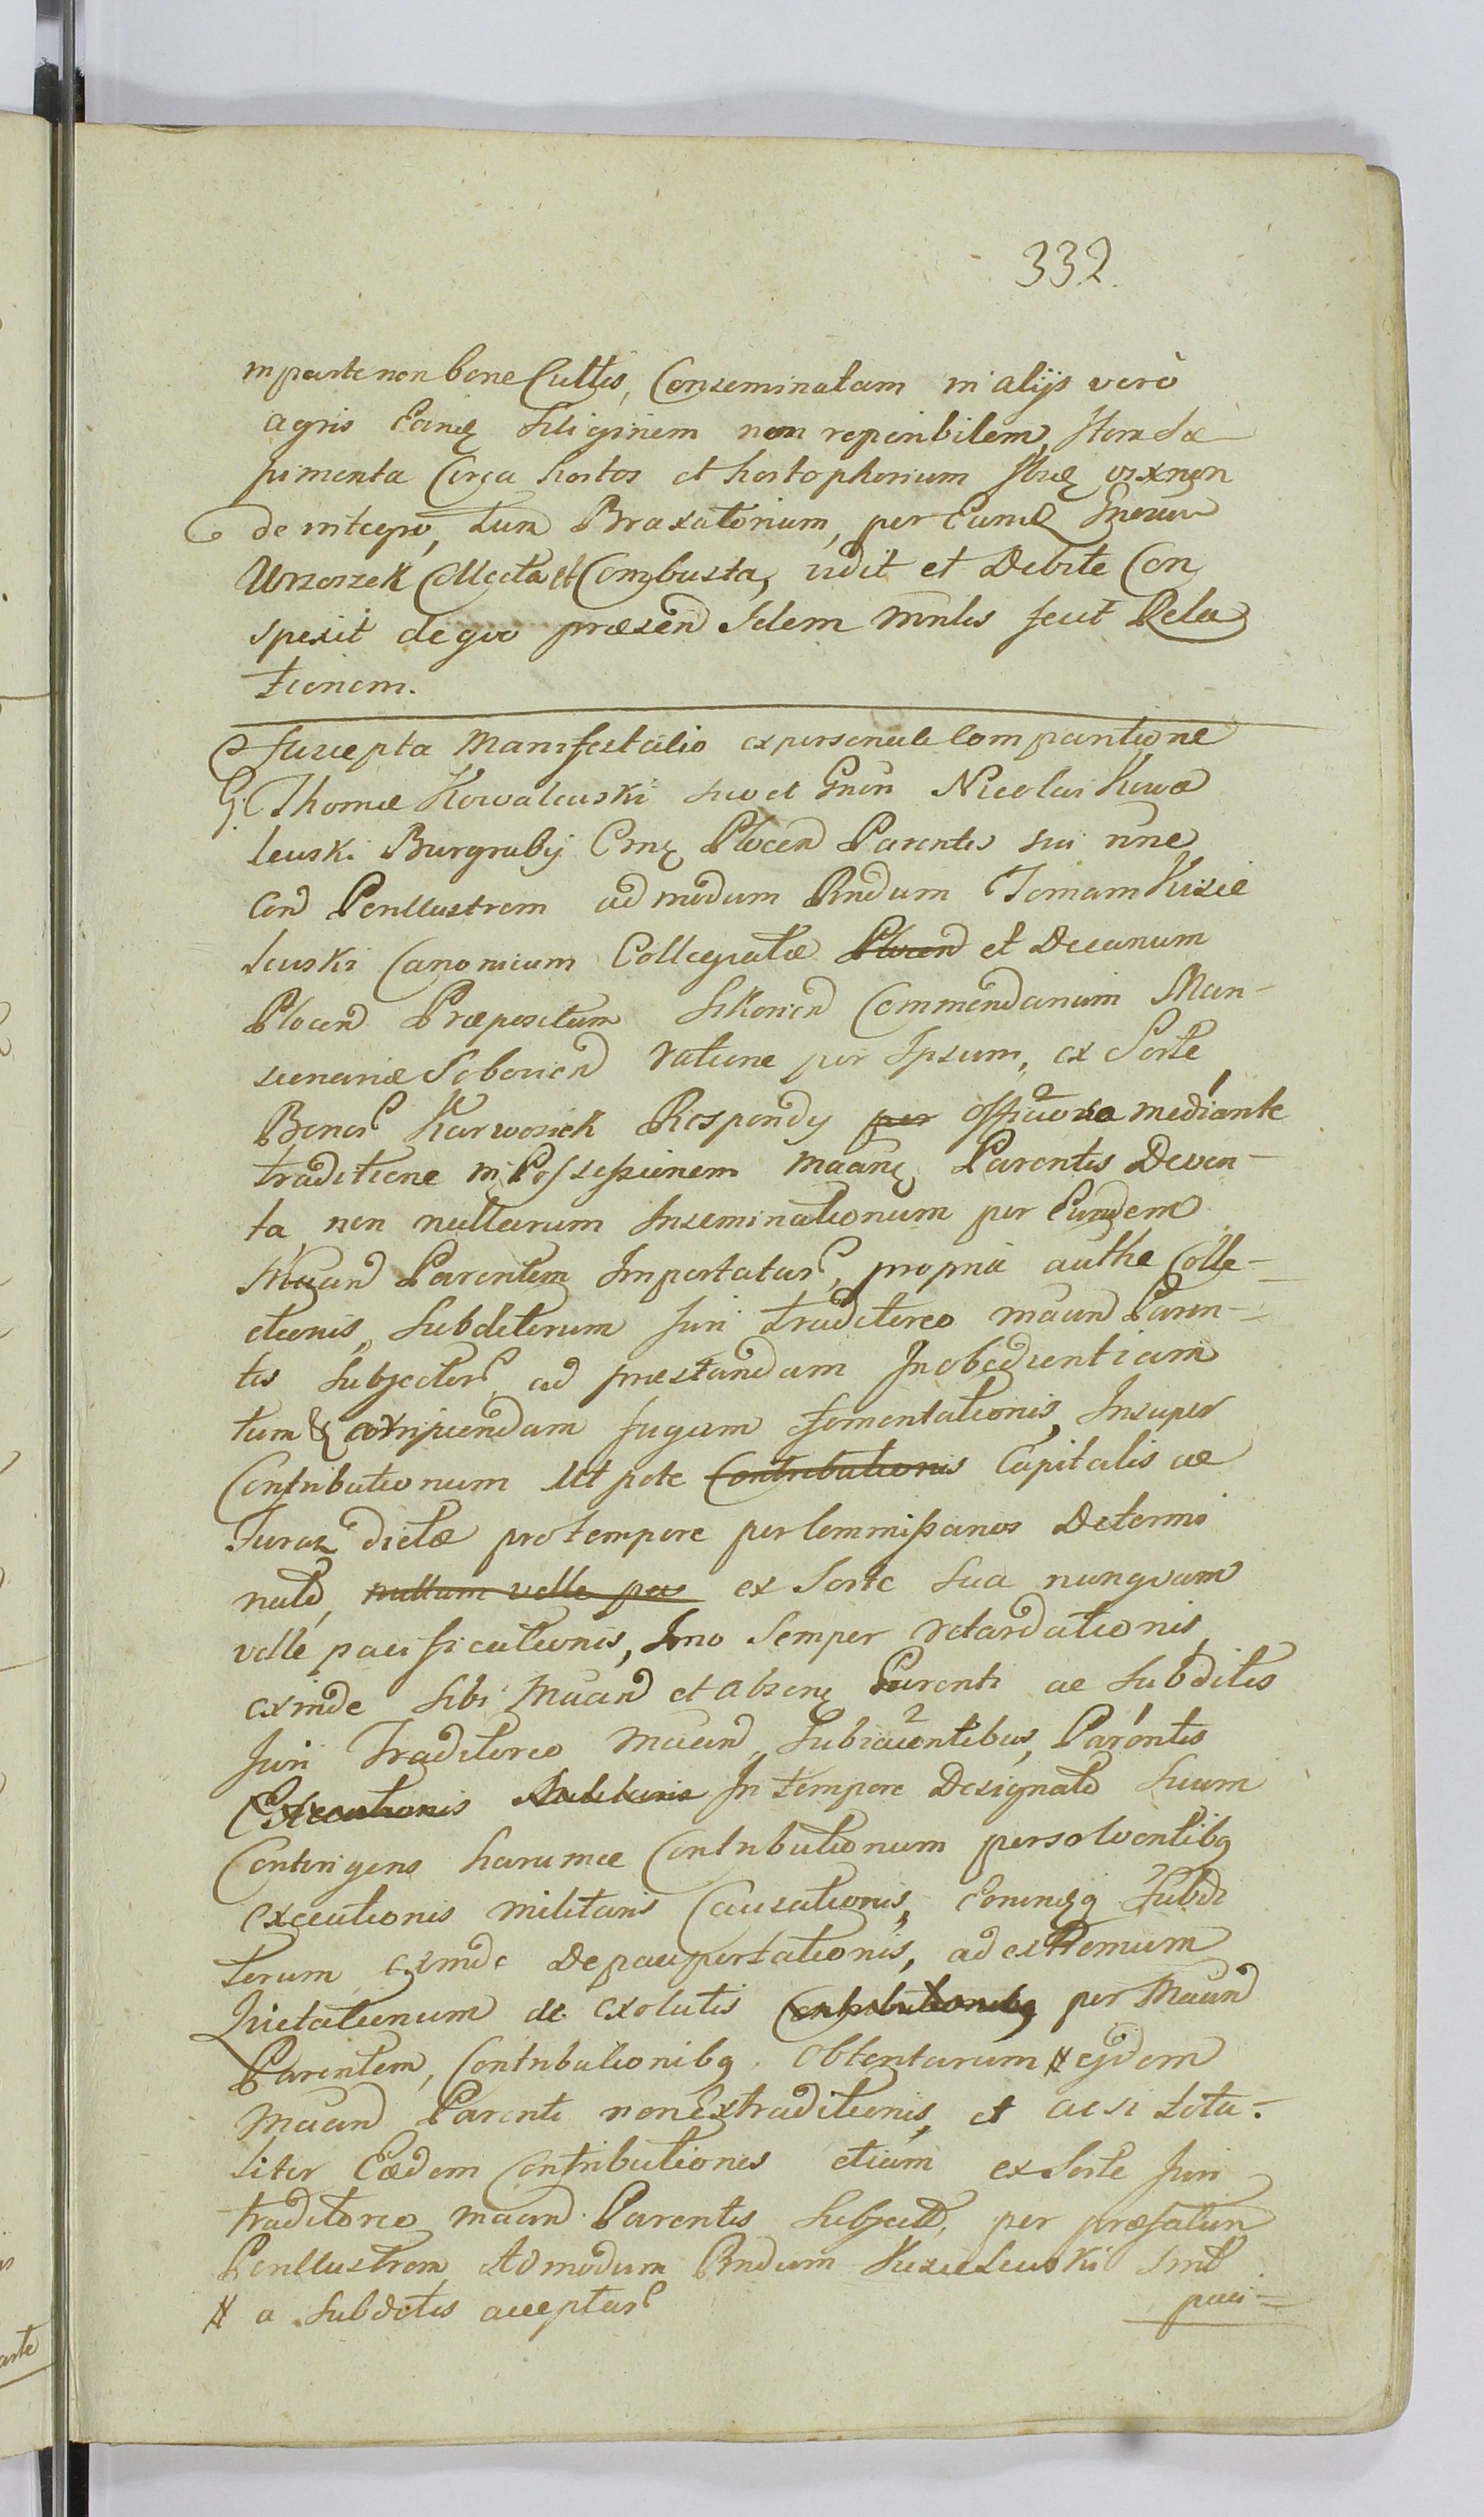 332.
in parte non bene Cultis, Conseminatam in alijs verò
agris Eamq siliginem non reperibilem, Item Sæ
pimenta Circa hortos et hortophorium
de integro, tum Braxatorium, per Eund Gnerum
Wrzoszek Collecta et Combusta, vidit et Debite Con
spexit de quo præsen Idem Mnlis fecit Rela
tionem.
Suscepta Manifestatio ex personali Comparitione
G. Thomæ Kowalewski suo et Gnen Nicolai Kowa
lewski Burgrabij Plocen Parentis sui nne
Con Perillustrem admodum Rndum Kisie
lewski Canonicum Collegiatæ Plocen et Decanum
Plocen Præpositum Sikorien Commendarium Man-
sionariæ Bobovien ratione per Ipsum, ex Sorte
Bonor Karwosiek Respondy per officiose mediante
traditione in Possessionem Maanq Parentis Deven-
ta non nullarum Inseminationum per Eundem
Maan Parentem Importatar, propria authe Colle-
ctionis, Subditorum Juri traditoreo maan Paren-
tis Subjector, ad præstandam Inobedientiam
tum & arripiendam fugam fomentationis, Insuper
Contributionum Ut pote Contributionis Capitalis ac
dictæ pro tempore per Commissarios Determi
nato, nullam velle pa ex Sorte Sua nunquam
velle pacificationis, Imo Semper retardationis
exinde Sibi Maan et Absenq Parenti ac Subditis
Juri Traditoreo Maan Subiacentibus, 2 Parentis 1
Executionis In tempore Designato Suum
Contingens harumce Contributionum persolventibq
executionis militaris Causationis, Subdi
torum exinde Depaupertationis, ad extremum
Quietationum de exolutis Contributionibq per Maan
Parentem, Contributionibq Obtentarum # ejdem
Maan Parenti non Extraditionis, et ac si tota-
liter Eædem Contributiones etiam ex Sorte Juri
traditoreo maan Parentis Subjecta, per præfatum
Perillustrem Admodum Rndum Kisielewski Sint
# a Subditis acceptar
paci-